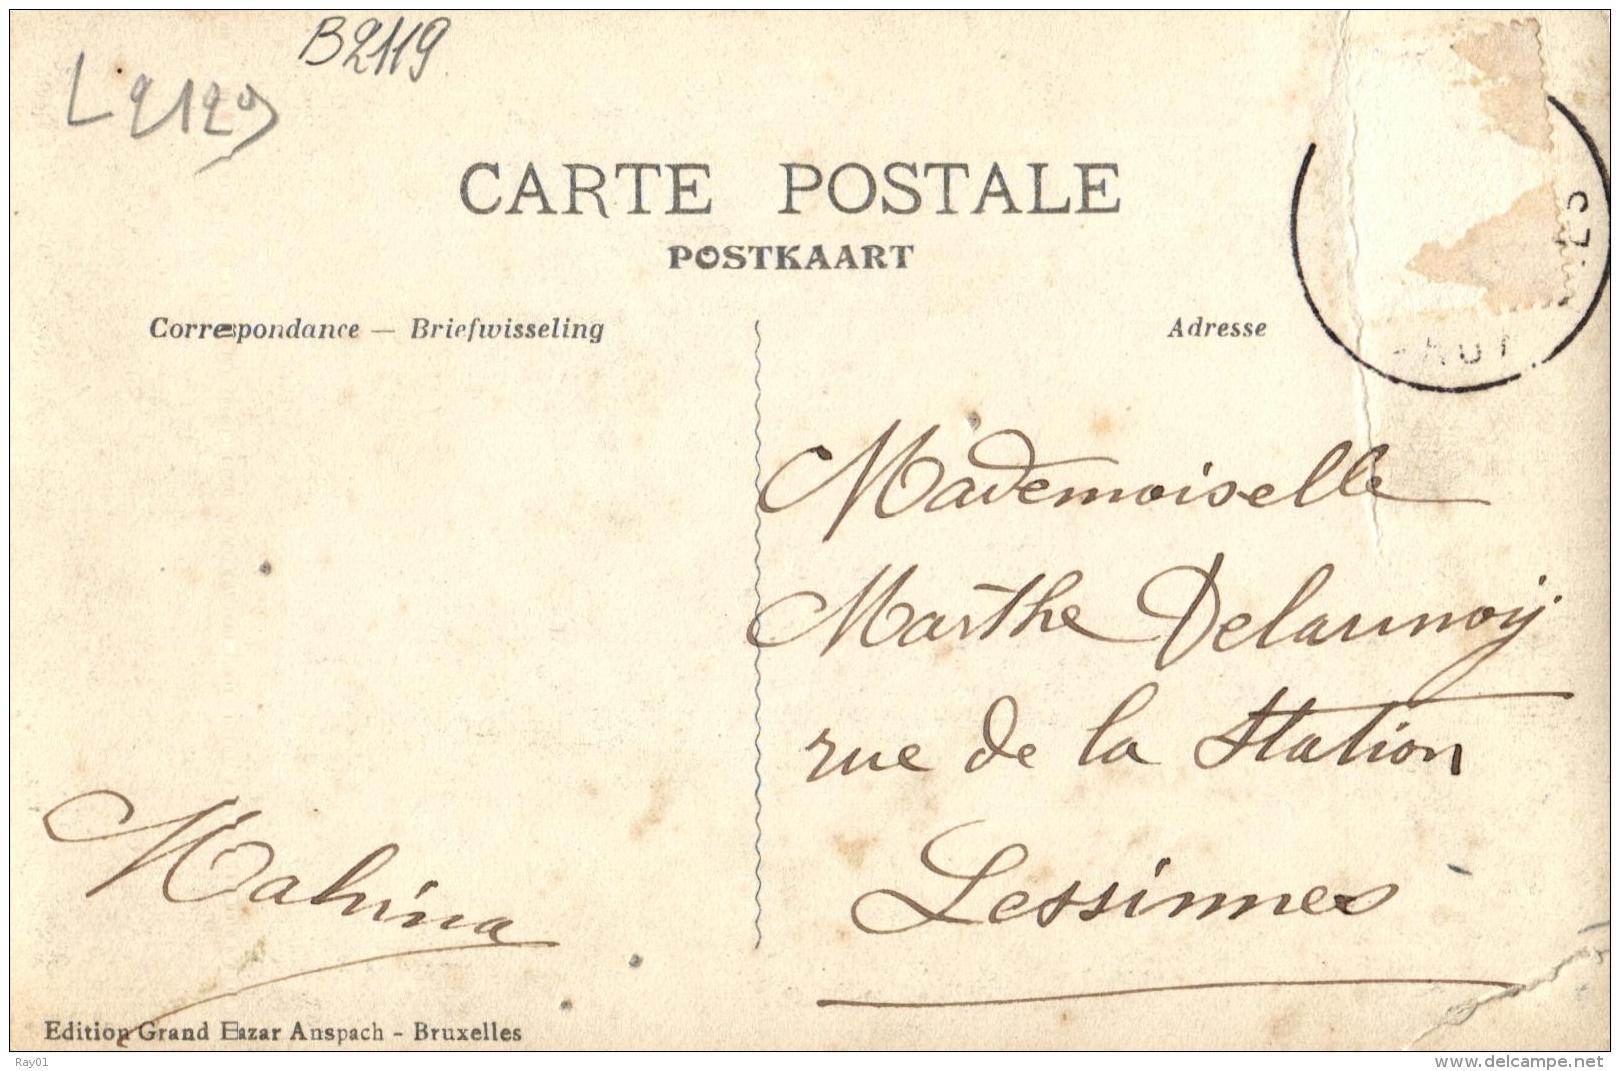 B2119
L2129
CARTE POSTALE
POSTKAART
Correspondance — Briefwisseling
Adresse
Mademoiselle
Marthe Delaunoij
rue de la Station
Lessinnes
Mahina
Edition Grand Bazar Anspach - Bruxelles
Ray01
www.delcampe.net